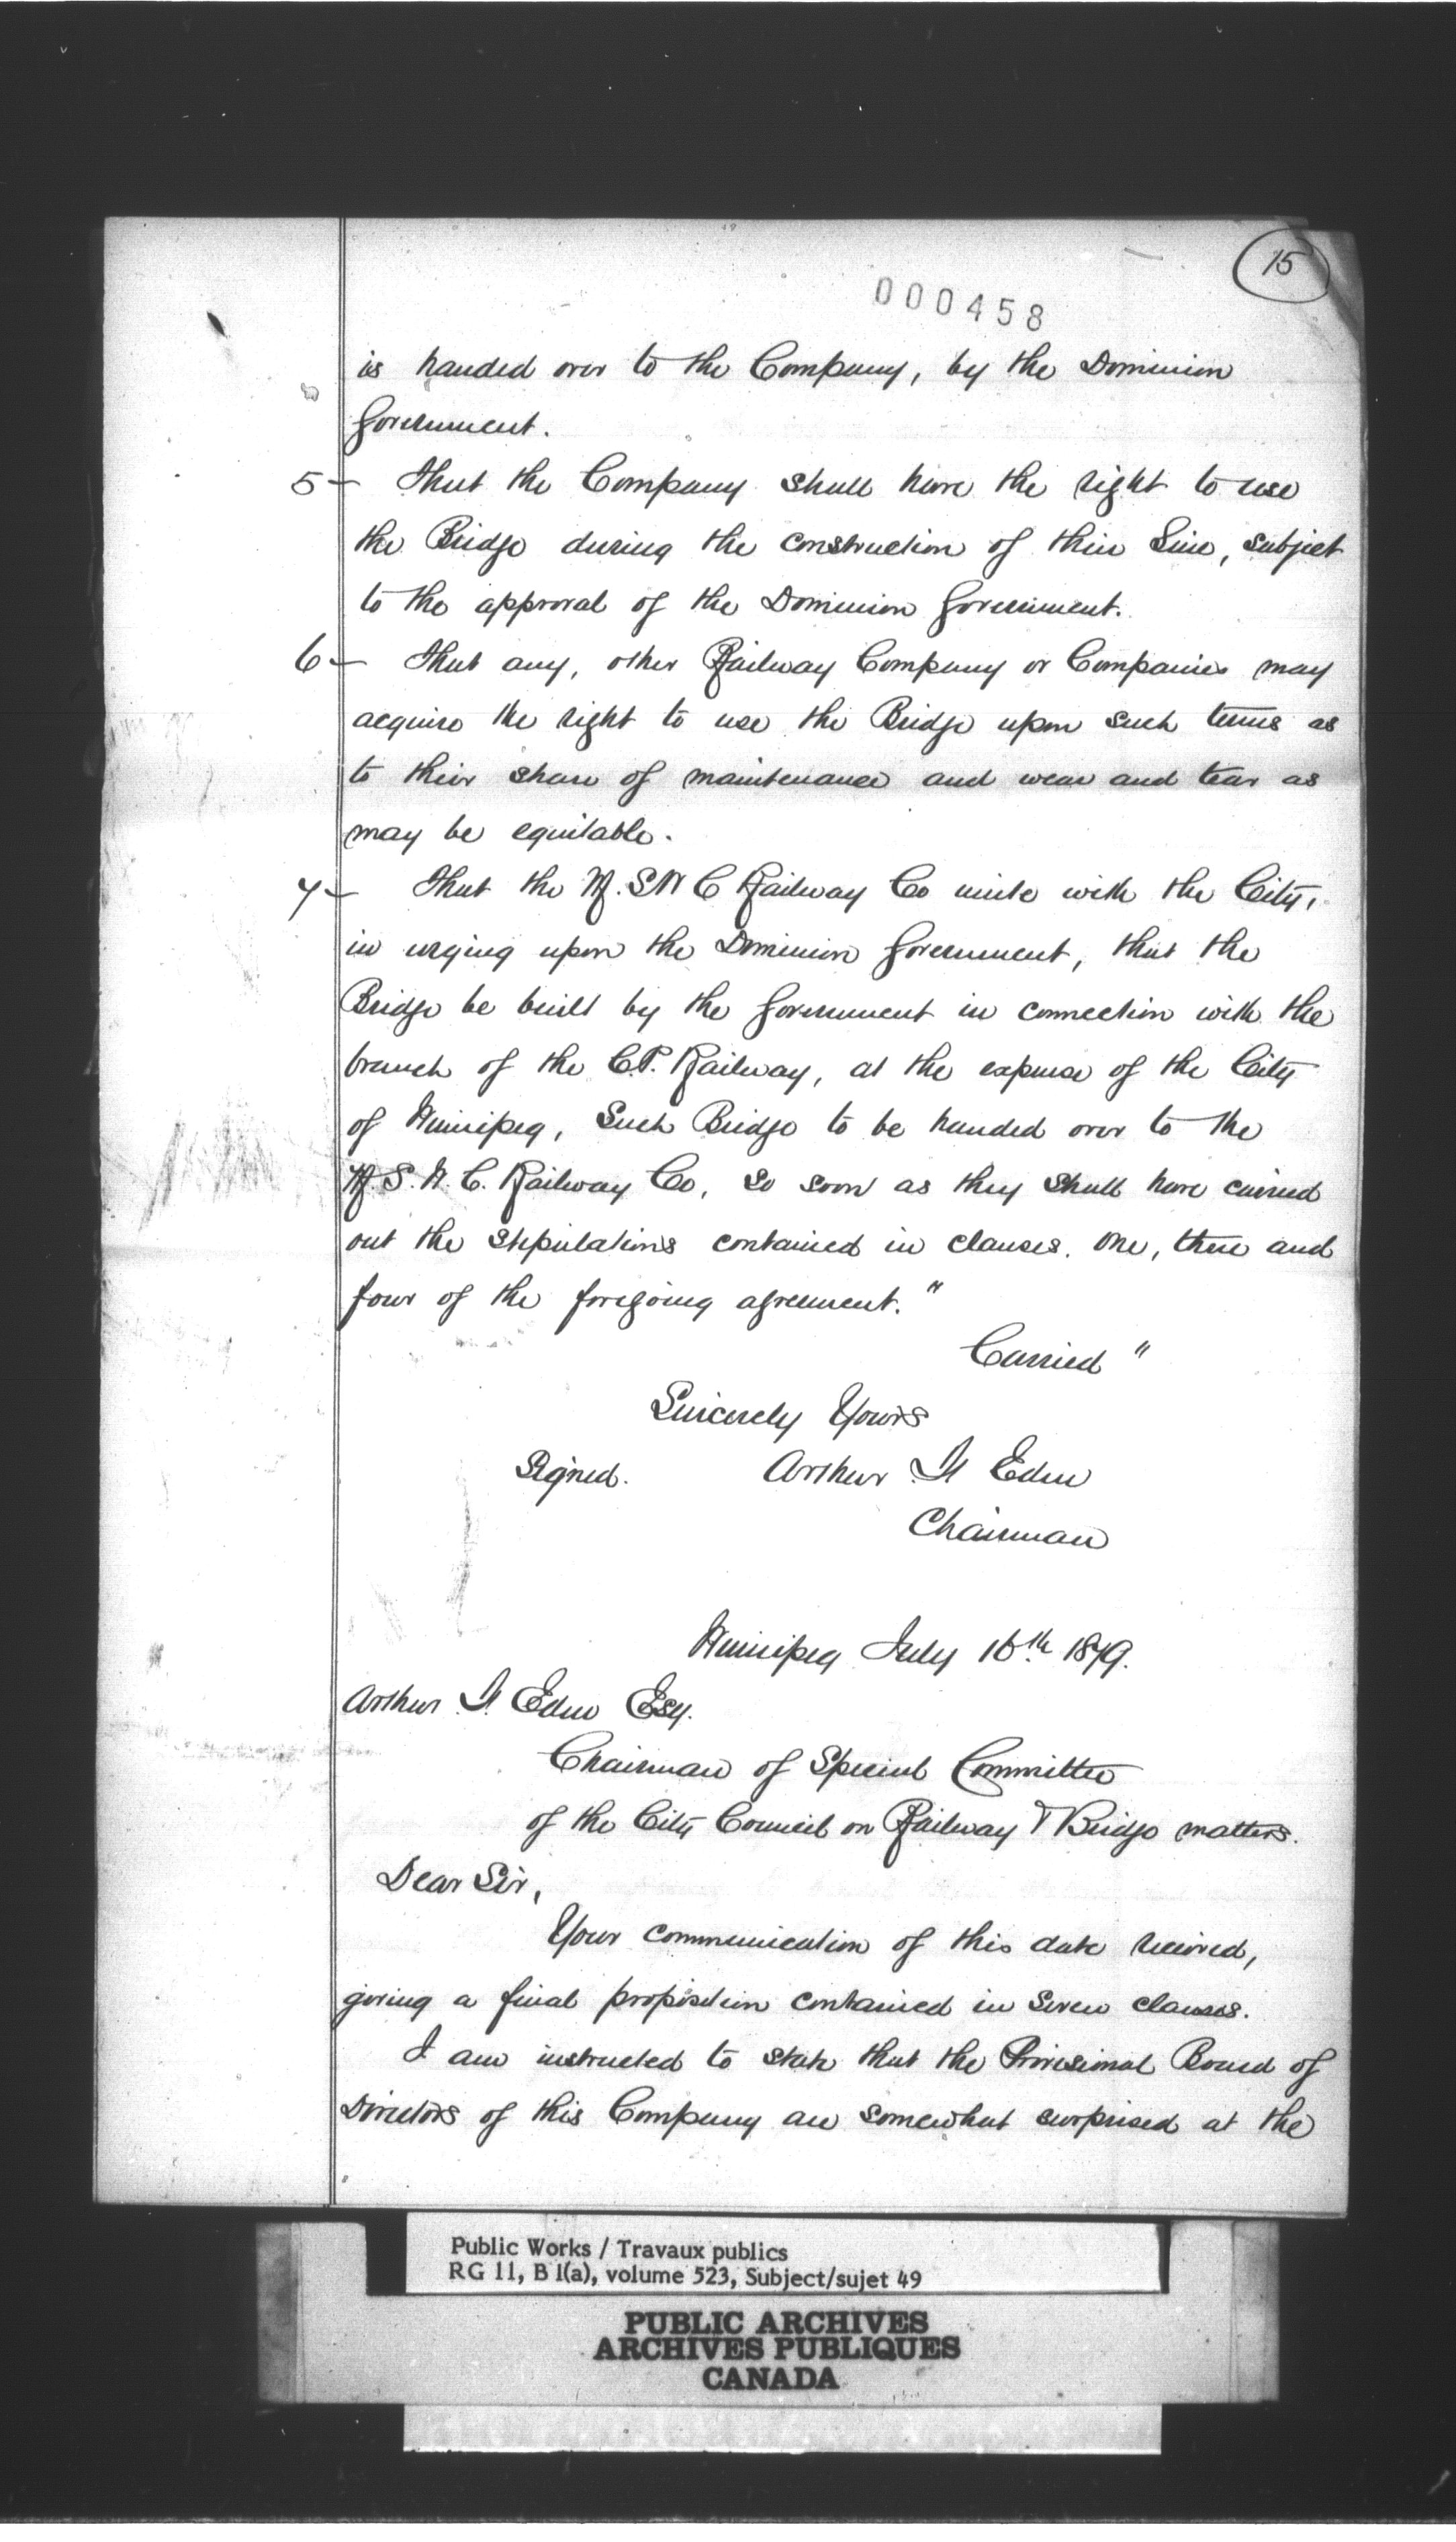 15
000458
is handed over to the Company, by the Dominion
Government.
5 - That the Company shall have the right to use
the Bridge during the construction of their Line, subject
to the approval of the Dominion Government.
6 - That any, other Railway Company or Companies may
acquire the right to use the Bridge upon such terms as
to their share of maintenance and wear and tear as
may be equitable.
7 - That the M. S W C Railway Co unite with the City,
in urging upon the Dominion Government, that the
Bridge be built by the Government in connection with the
branch of the C.P. Railway, at the expense of the City
of Winnipeg, Such Bridge to be handed over to the
M. S. W. C. Railway Co, so soon as they shall have carried
out the stipulations contained in clauses. One, three and
four of the foregoing agreement."
Carried "
Sincerely Yours
Signed. Arthur Eden
Chairman
Winnipeg July 16th 1879.
Arthur Eden Esq.
Chairman of Special Committee
of the City Council on Railway & Bridge matters.
Dear Sir,
Your communication of this date received,
giving a final proposition contained in seven clauses.
I am instructed to state that the Provisional Board of
Directors of this Company are somewhat surprised at the
Public Works / Travaux publics
RG 11, B 1(a), volume 523, Subject/sujet 49
PUBLIC ARCHIVES
ARCHIVES PUBLIQUES
CANADA